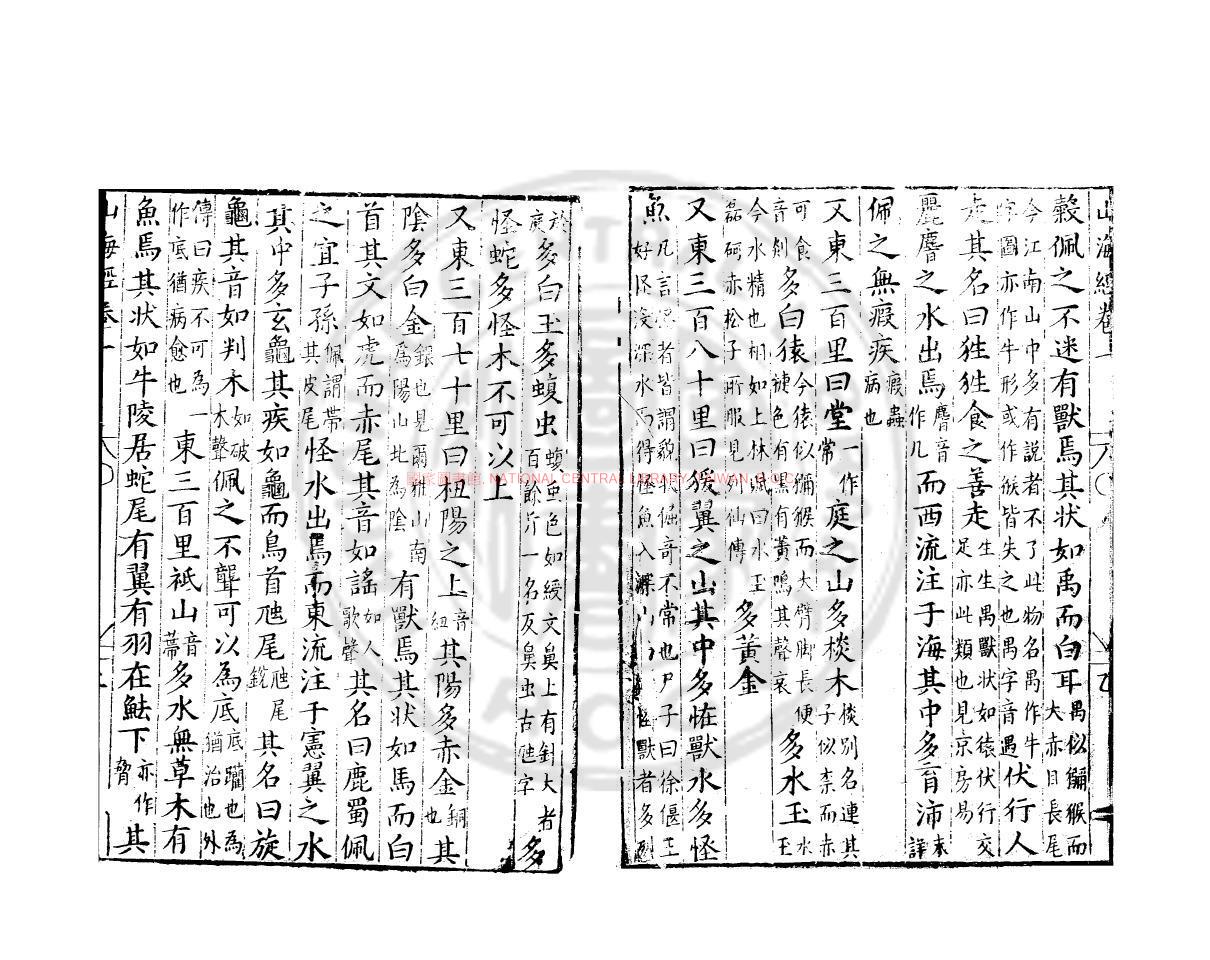 山海經卷一
穀佩之不迷有獸焉其状如禹而白耳禺似獼猴而大赤目長尾
今江南山中多有説者不了此物名禺作牛字圖亦作牛形或作猴皆失之也禺字音遇伏行人
走其名曰狌狌食之善走生生禺獸状如猿伏行交足亦此類也見京房易
麗麐之水出焉麐音作几而西流注于海其中多育沛未詳
佩之無瘕疾瘕蟲病也
又東三百里曰堂一作常庭之山多棪木棪別名連其子似柰而赤
可食音剡多白猿今猿似獼猴而大臂脚長便捷色有黑有黃鳴其聲哀多水玉水玉
今水精也相如上林賦曰水玉磊砢赤松子所服見列仙傳多黃金
又東三百八十里曰猨翼之山其中多怪獸水多怪
魚凡言怪者皆謂貌狀倔奇不常也尸子曰徐偃王好怪沒深水而得怪魚入深山怪獸者多列
於庭多白玉多蝮虫蝮虫色如綬文鼻上有針大者百餘斤一名反鼻虫古虺字多
怪蛇多怪木不可以上
又東三百七十里曰杻陽之上音紐其陽多赤金銅也其
陰多白金銀也見爾雅山南為陽山北為陰有獸焉其状如馬而白
首其文如虎而赤尾其音如謠如人歌聲其名曰鹿蜀佩
之宜子孫佩謂帶其皮尾怪水出焉而東流注于憲翼之水
其中多玄龜其疾如龜而鳥首虺尾虺尾銳其名曰旋
龜其音如判木如破木聲佩之不聾可以為底底躪也為猶治也外
傳曰疾不可為一作底猶病愈也東三百里祗山音蔕多水無草木有
魚焉其状如牛陵居蛇尾有翼有羽在鮭下亦作脅其
山海經卷一
國家圖書館, NATIONAL CENTRAL LIBRARY, TAIWAN, R.O.C.